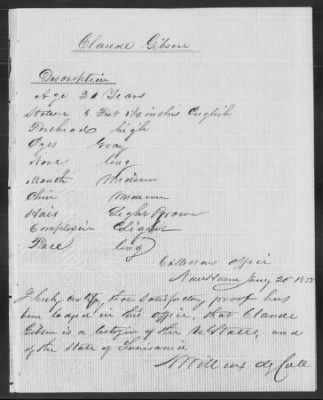 Claude Gibson
Description
Age 21 Years
Stature 5 Feet inches English
Forehead high
Eyes Gray
Nose long
Mouth Medium
Chin Medium
Hair Light Brown
Complexion Light
Face long
Collectors Office
New Haven Jany 20
I hereby certify, that satisfactory proof has
been lodged in this office, that Claude
Gibson is a citizen of the U States, and
of the State of Louisiana